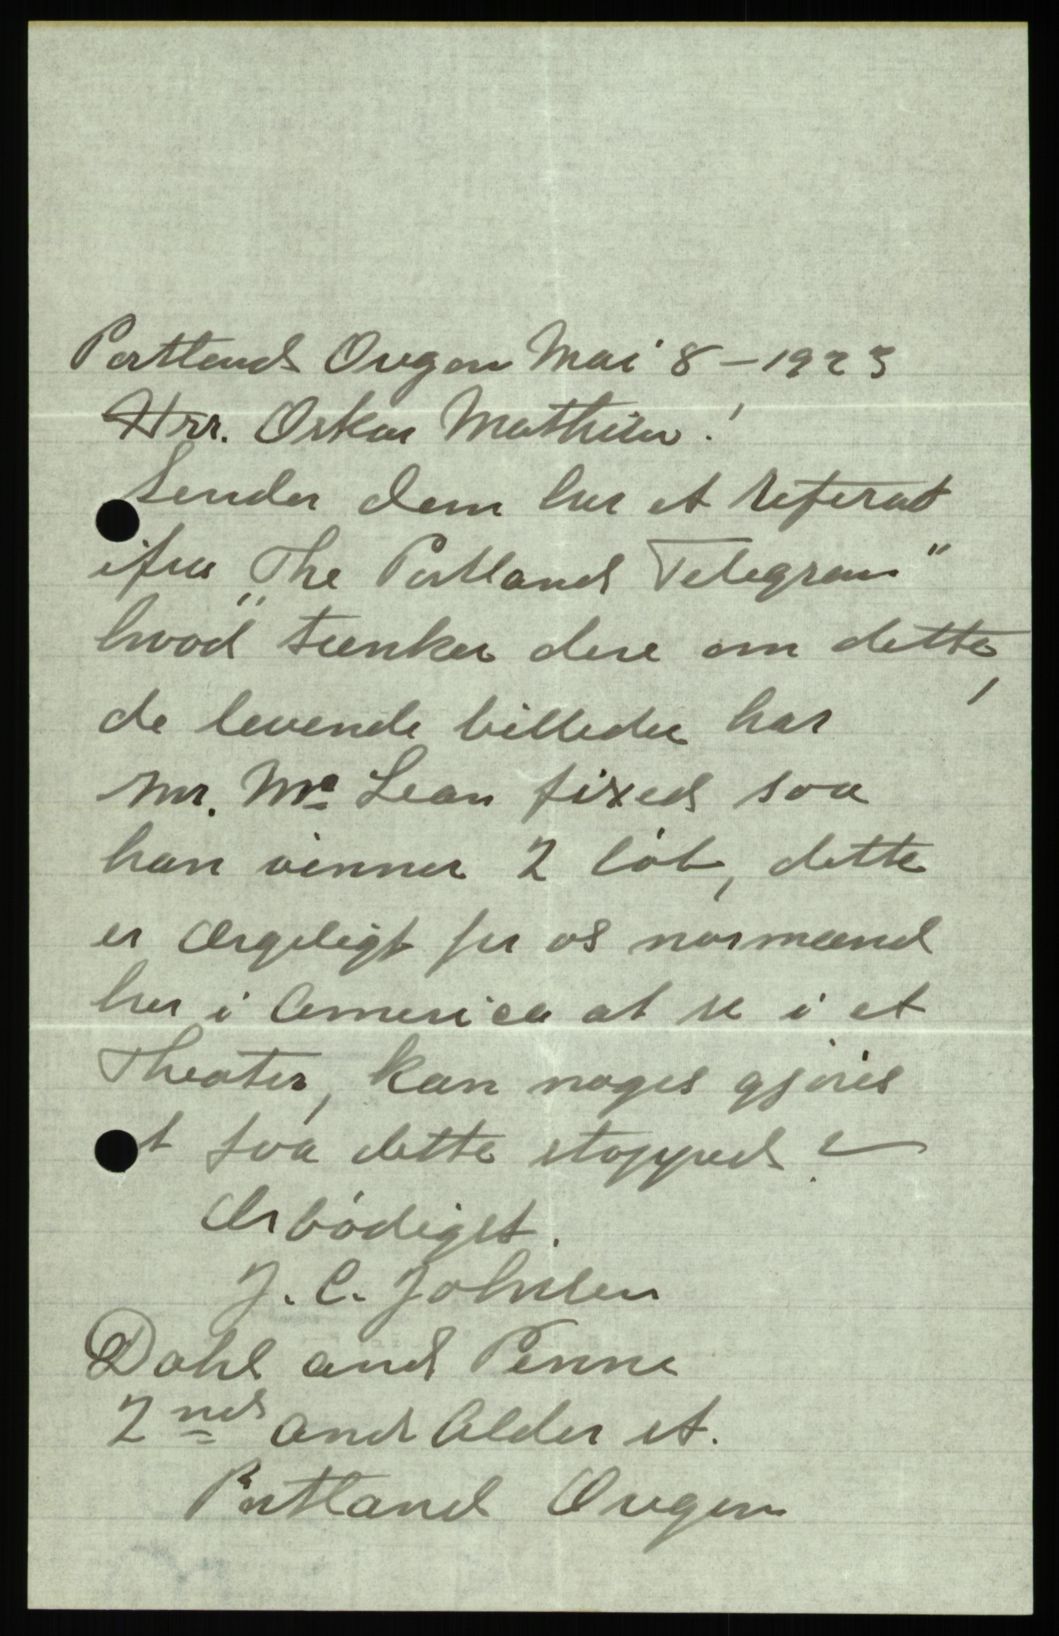 Portland Oregon Mai 8 – 1923
Hrr. Oskar Mathisen!
Sender dem her et referat
ifra „The Portland Telegram"
hvod tænker dere om dette,
de levende billeder har
Mr. Mc Lean fixed saa
han vinner 2 löb, dette
er ærgeligt for os normænd
her i America at se i et
Theater, kan noges gjöres
at faa dette stopped?
Ærbödigst.
J. C. Johnsen
Dahl and Penne
2nd and Alder st.
Portland Oregon